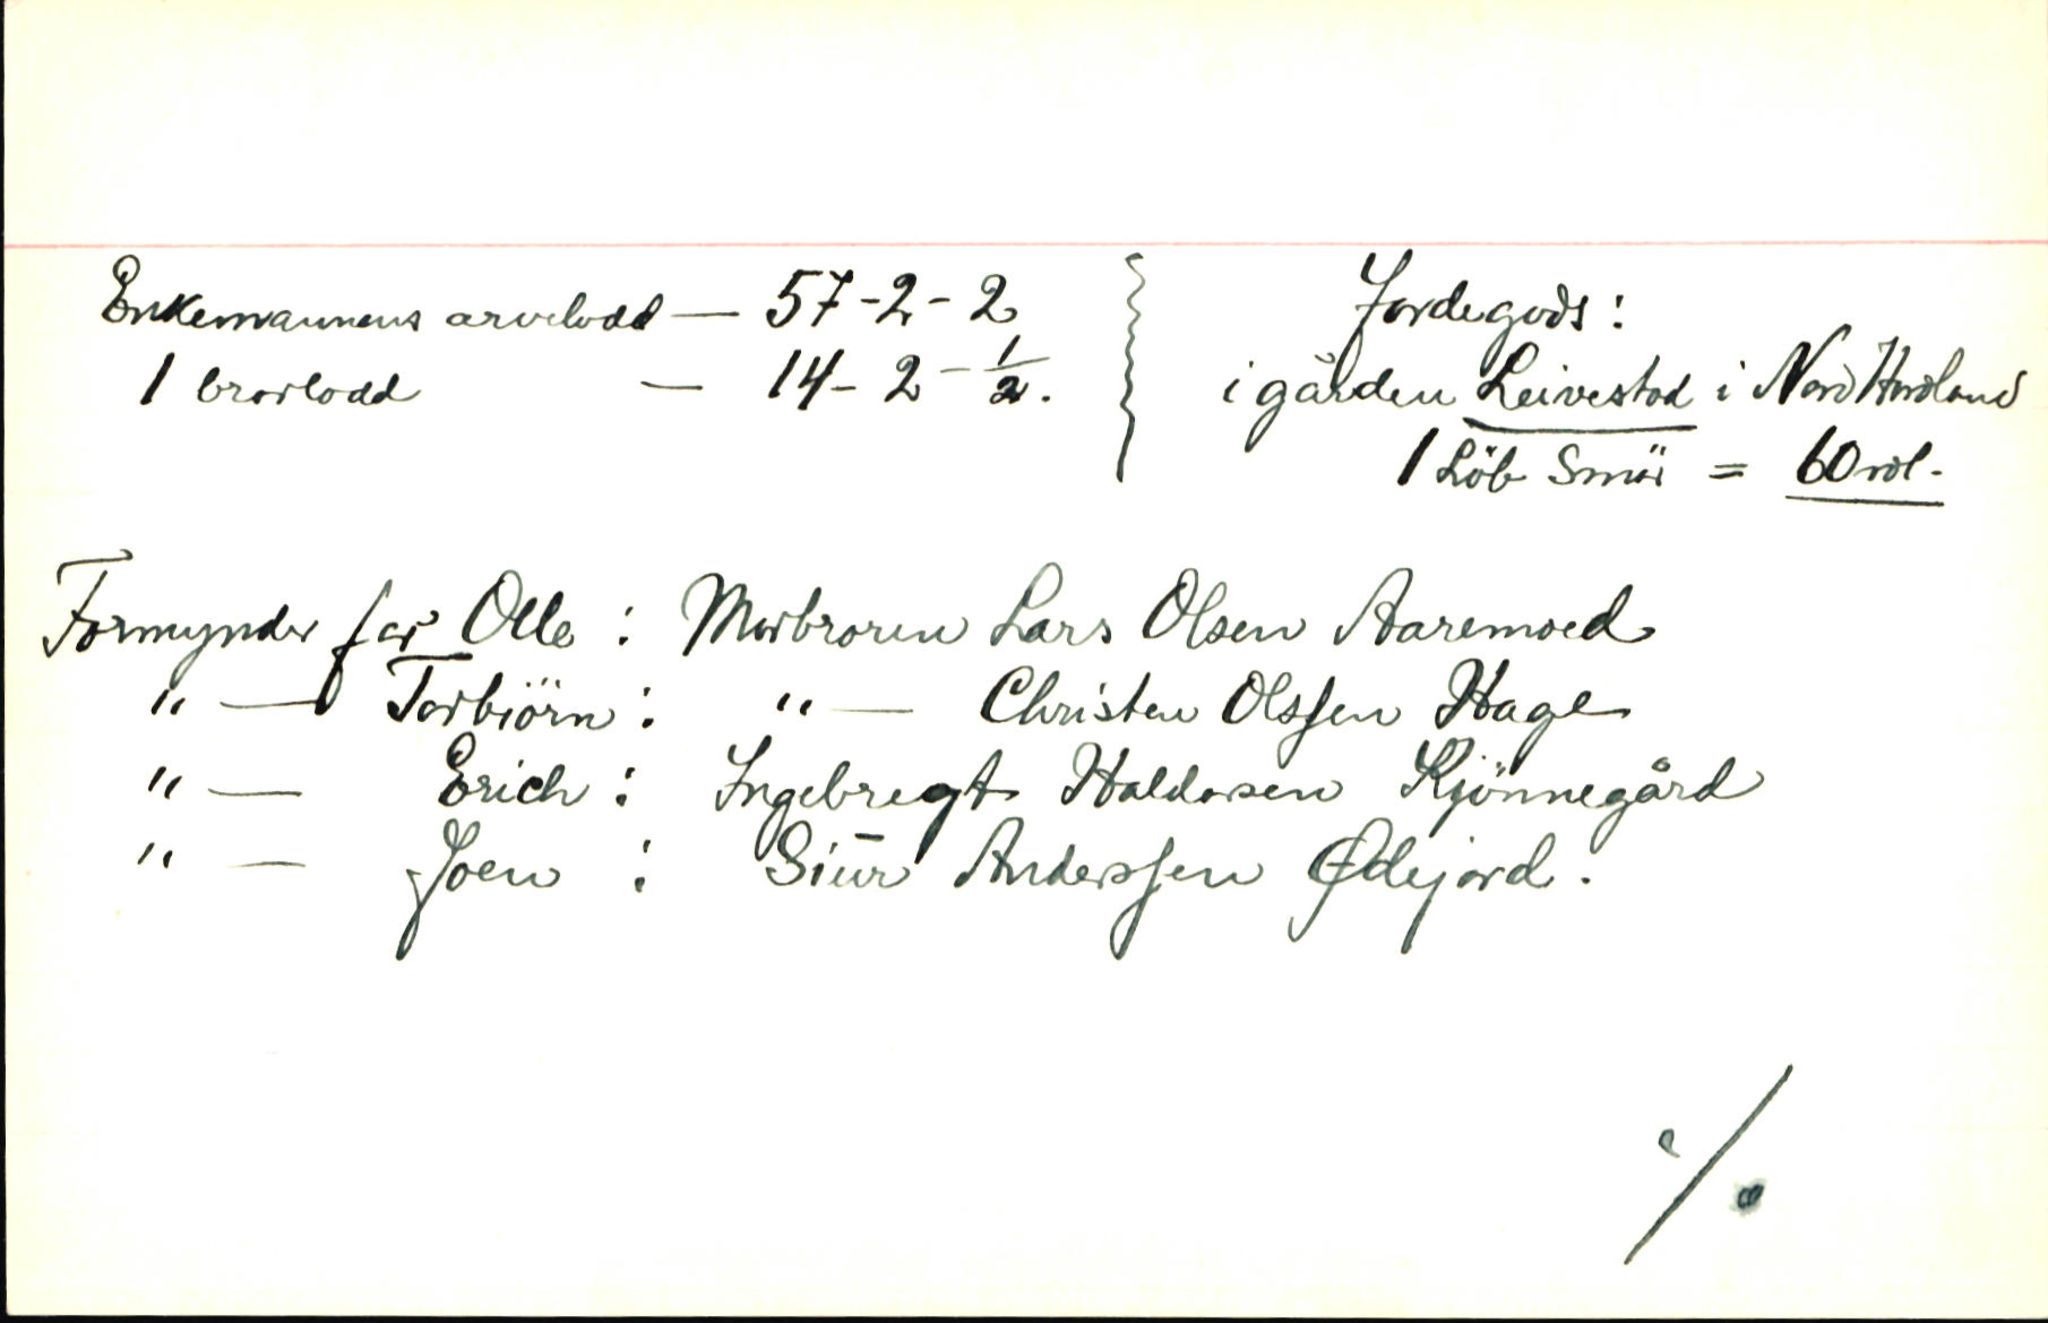 Enkemannens arvelodd — 57-2-2
1 brorlodd — 14-2-1/2.
Jordegods:
i gården Leivestad i Nord Hordland
1 Löb Smör = 60 rdl.
Formynder for Olle : Morbroren Lars Olsen Aaremoed
" — Torbiörn : " — Christen Olssen Hage
" — Erich : Ingebregt Haldorsen Kjönnegård
" — Joen : Siur Anderssen Ødejord.
%